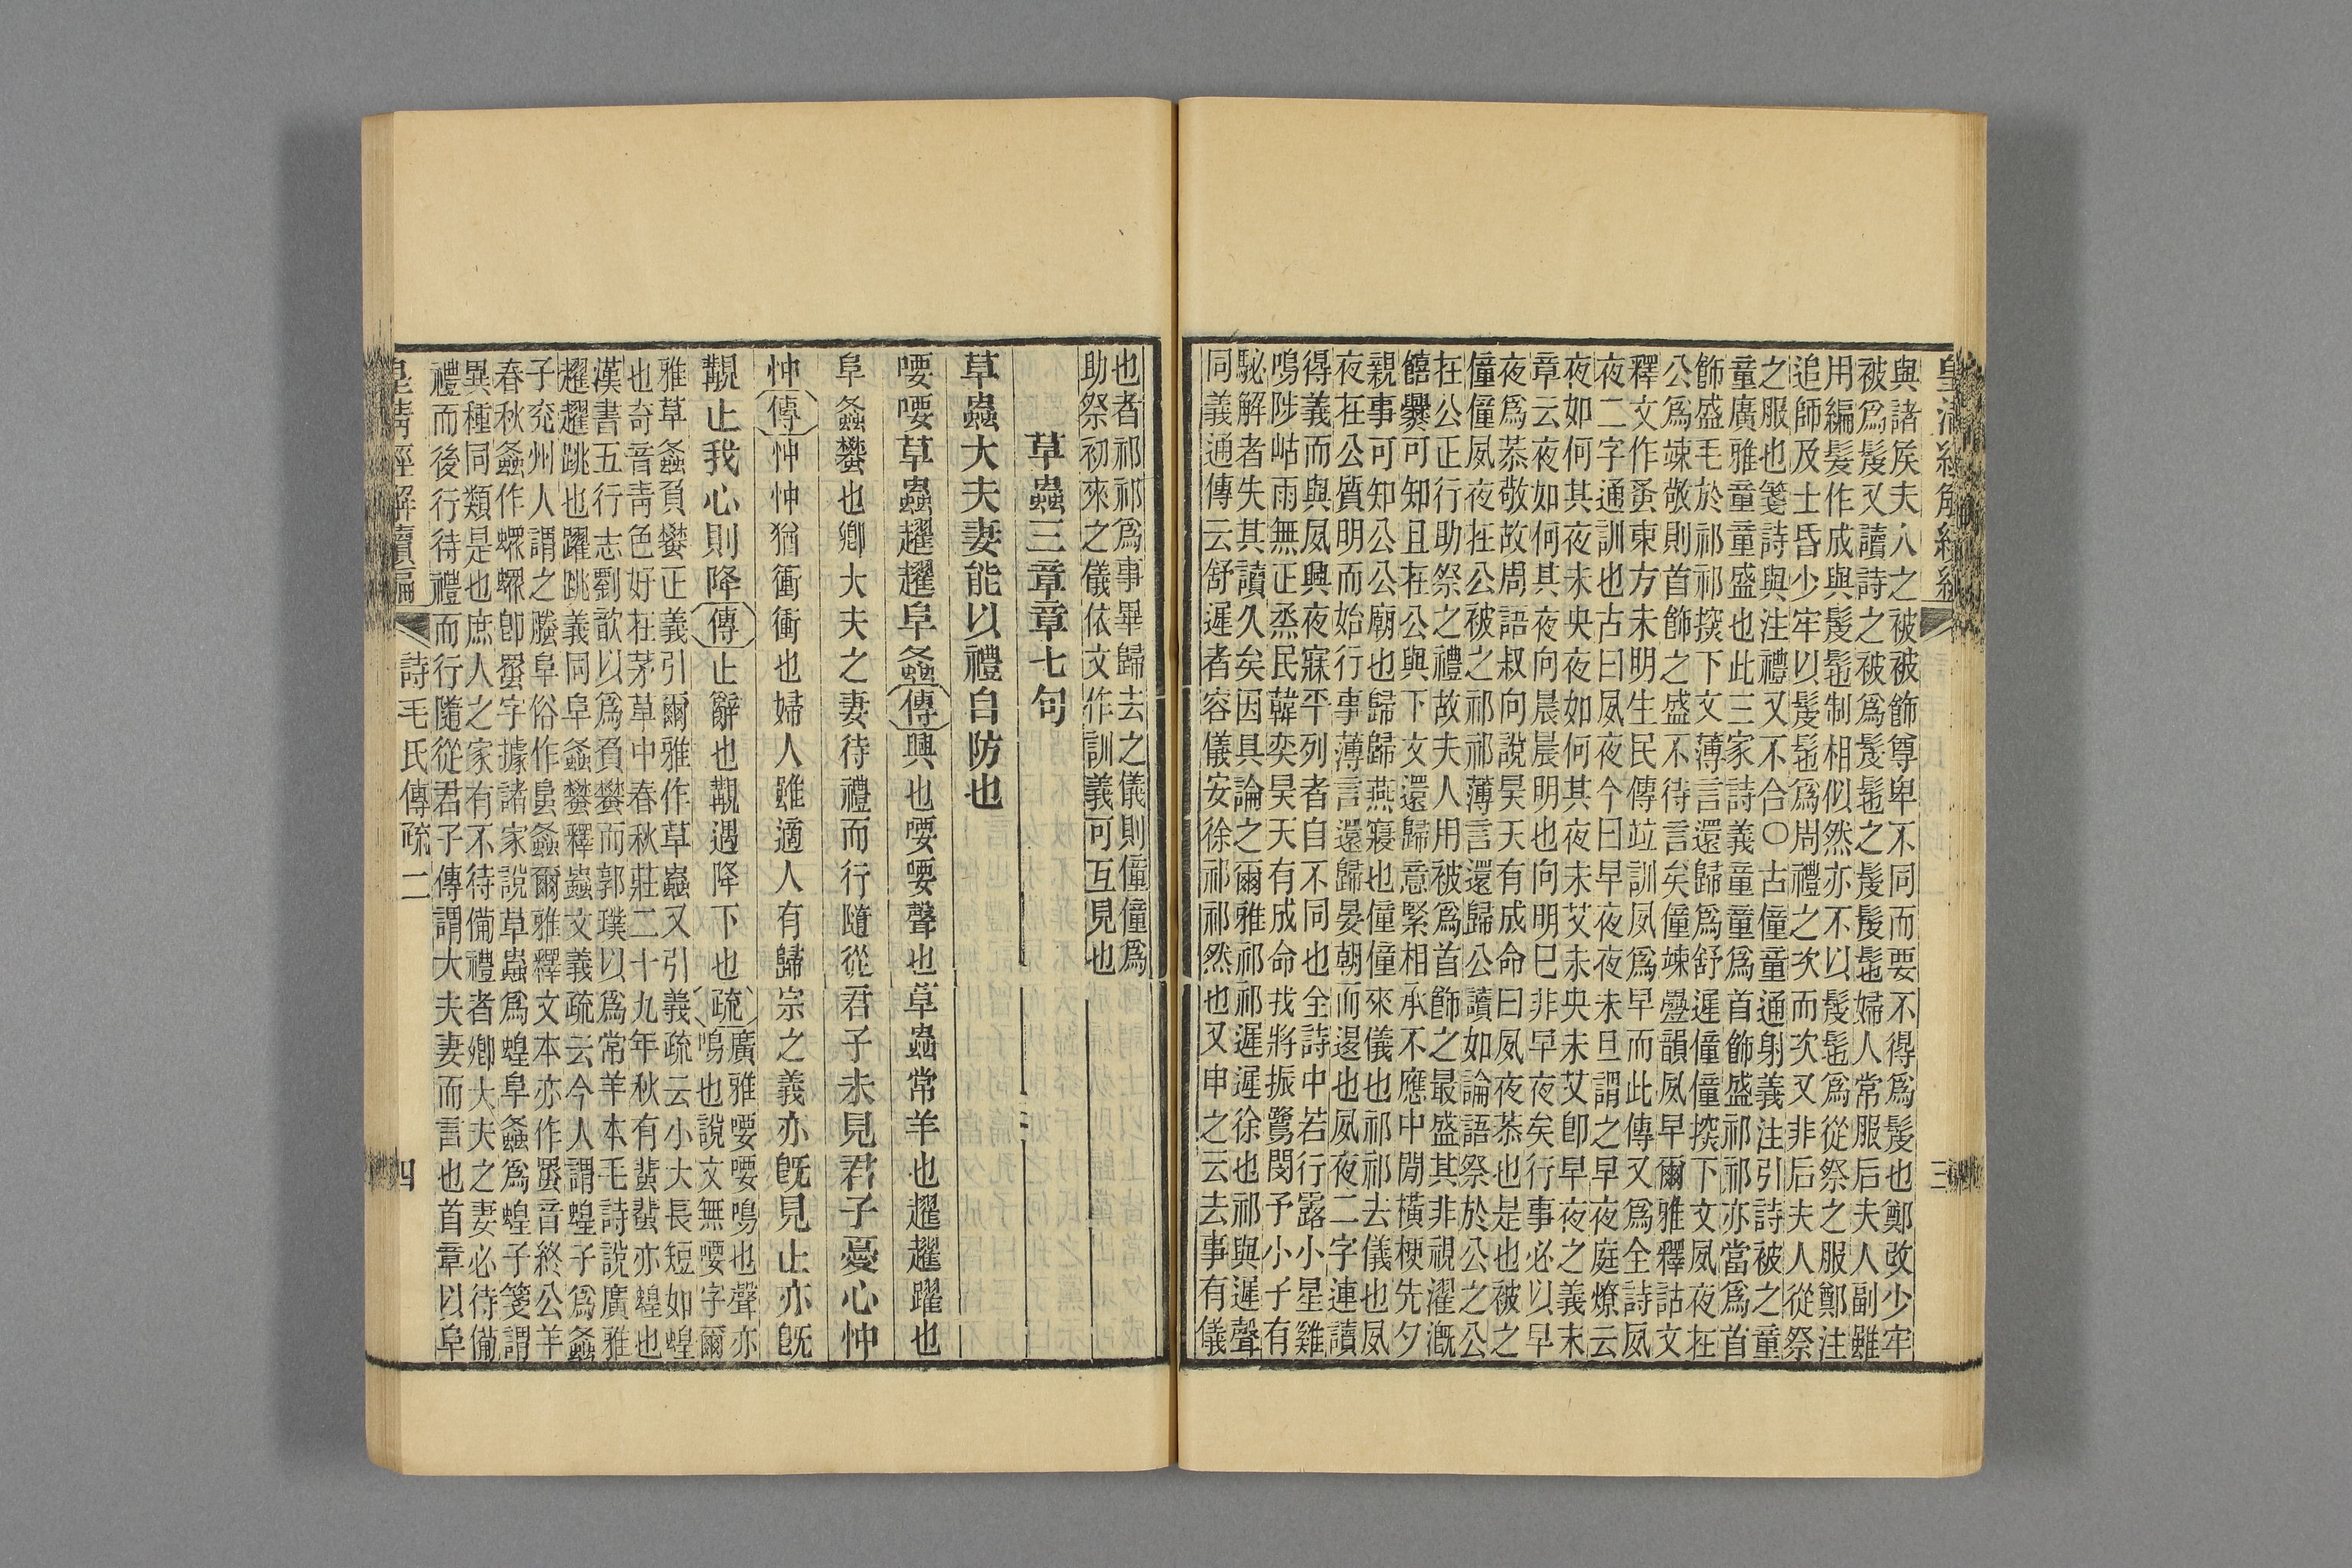 皇清經解續編
三
與諸矦夫人之被被飾尊卑不同而要不得爲髲也鄭改少牢
被爲髲又讀詩之被爲髲髢之髲髲髢婦人常服后夫人副雖
用編髮作成與髲髢制相似然亦不以髲髢爲從祭之服鄭注
追師及士昏少牢以髲髢爲周禮之次而次又非后夫人從祭
之服也箋詩與注禮又不合〇古僮童通射義注引詩被之童
童廣雅童童盛也此三家詩義童童爲首飾盛祁祁亦當爲首
飾盛毛於祁祁探下文薄言還歸爲舒遲僮僮探下文夙夜在
公爲竦敬則首飾之盛不待言矣僮竦疊韻夙早爾雅釋詁文
釋文作蚤東方未明生民傳竝訓夙爲早而此傳又爲全詩夙
夜二字通訓也古曰夙夜今曰早夜夜未旦謂之早夜庭燎云
夜如何其夜未央夜如何其夜未艾未央未艾卽早夜之義末
章云夜如何其夜向晨晨明也向明巳非早夜矣行事必以早
夜爲恭敬故周語叔向說昊天有成命曰夙夜恭也是也被之
僮僮夙夜在公被之祁祁薄言還歸公讀如論語祭於公之公
在公正行助祭之禮故夫人用被爲首飾之最盛其非視濯漑
饎爨可知且在公與下文還歸意緊相承不應中閒橫梗先夕
親事可知公公廟也歸歸燕寢也僮僮來儀也祁祁去儀也夙
夜在公質明而始行事薄言還歸晏朝而逷也夙夜二字連讀
得義而與夙興夜寐平列者自不同也全詩中若行露小星雞
鳴陟岵雨無正烝民韓奕昊天有成命我將振鷺閔予小子有
駜解者失其讀久矣因具論之爾雅祁祁遲遲徐也祁與遲聲
同義通傳云舒遲者容儀安徐祁祁然也又申之云去事有儀
也者祁祁爲事畢歸去之儀則僮僮爲
助祭初來之儀依文作訓義可互見也
草蟲三章章七句
草蟲大夫妻能以禮自防也
喓喓草蟲趯趯阜螽傳興也喓喓聲也草蟲常羊也趯趯躍也
阜螽蠜也卿大夫之妻待禮而行隨從君子未見君子憂心忡
忡傳忡忡猶衝衝也婦人雖適人有歸宗之義亦旣見止亦旣
覯止我心則降傳止辭也覯遇降下也疏廣雅喓喓鳴也聲亦
鳴也說文無喓字爾
雅草螽負蠜正義引爾雅作草蟲又引義疏云小大長短如蝗
也奇音靑色好在茅草中春秋莊二十九年秋有蜚蜚亦蝗也
漢書五行志劉歆以爲負蠜而郭璞以爲常羊本毛詩說廣雅
趯趯跳也躍跳義同阜螽蠜釋蟲文義疏云今人謂蝗子爲螽
子兖州人謂之螣阜俗作𧒂螽爾雅釋文本亦作蠿音終公羊
春秋螽作蠓蠓卽蠿字據諸家說草蟲爲蝗阜螽爲蝗子箋謂
異種同類是也庶人之家有不待備禮者卿大夫之妻必待備
禮而後行待禮而行隨從君子傳謂大夫妻而言也首章以阜
皇清經解續編
詩毛氏傳疏二
四